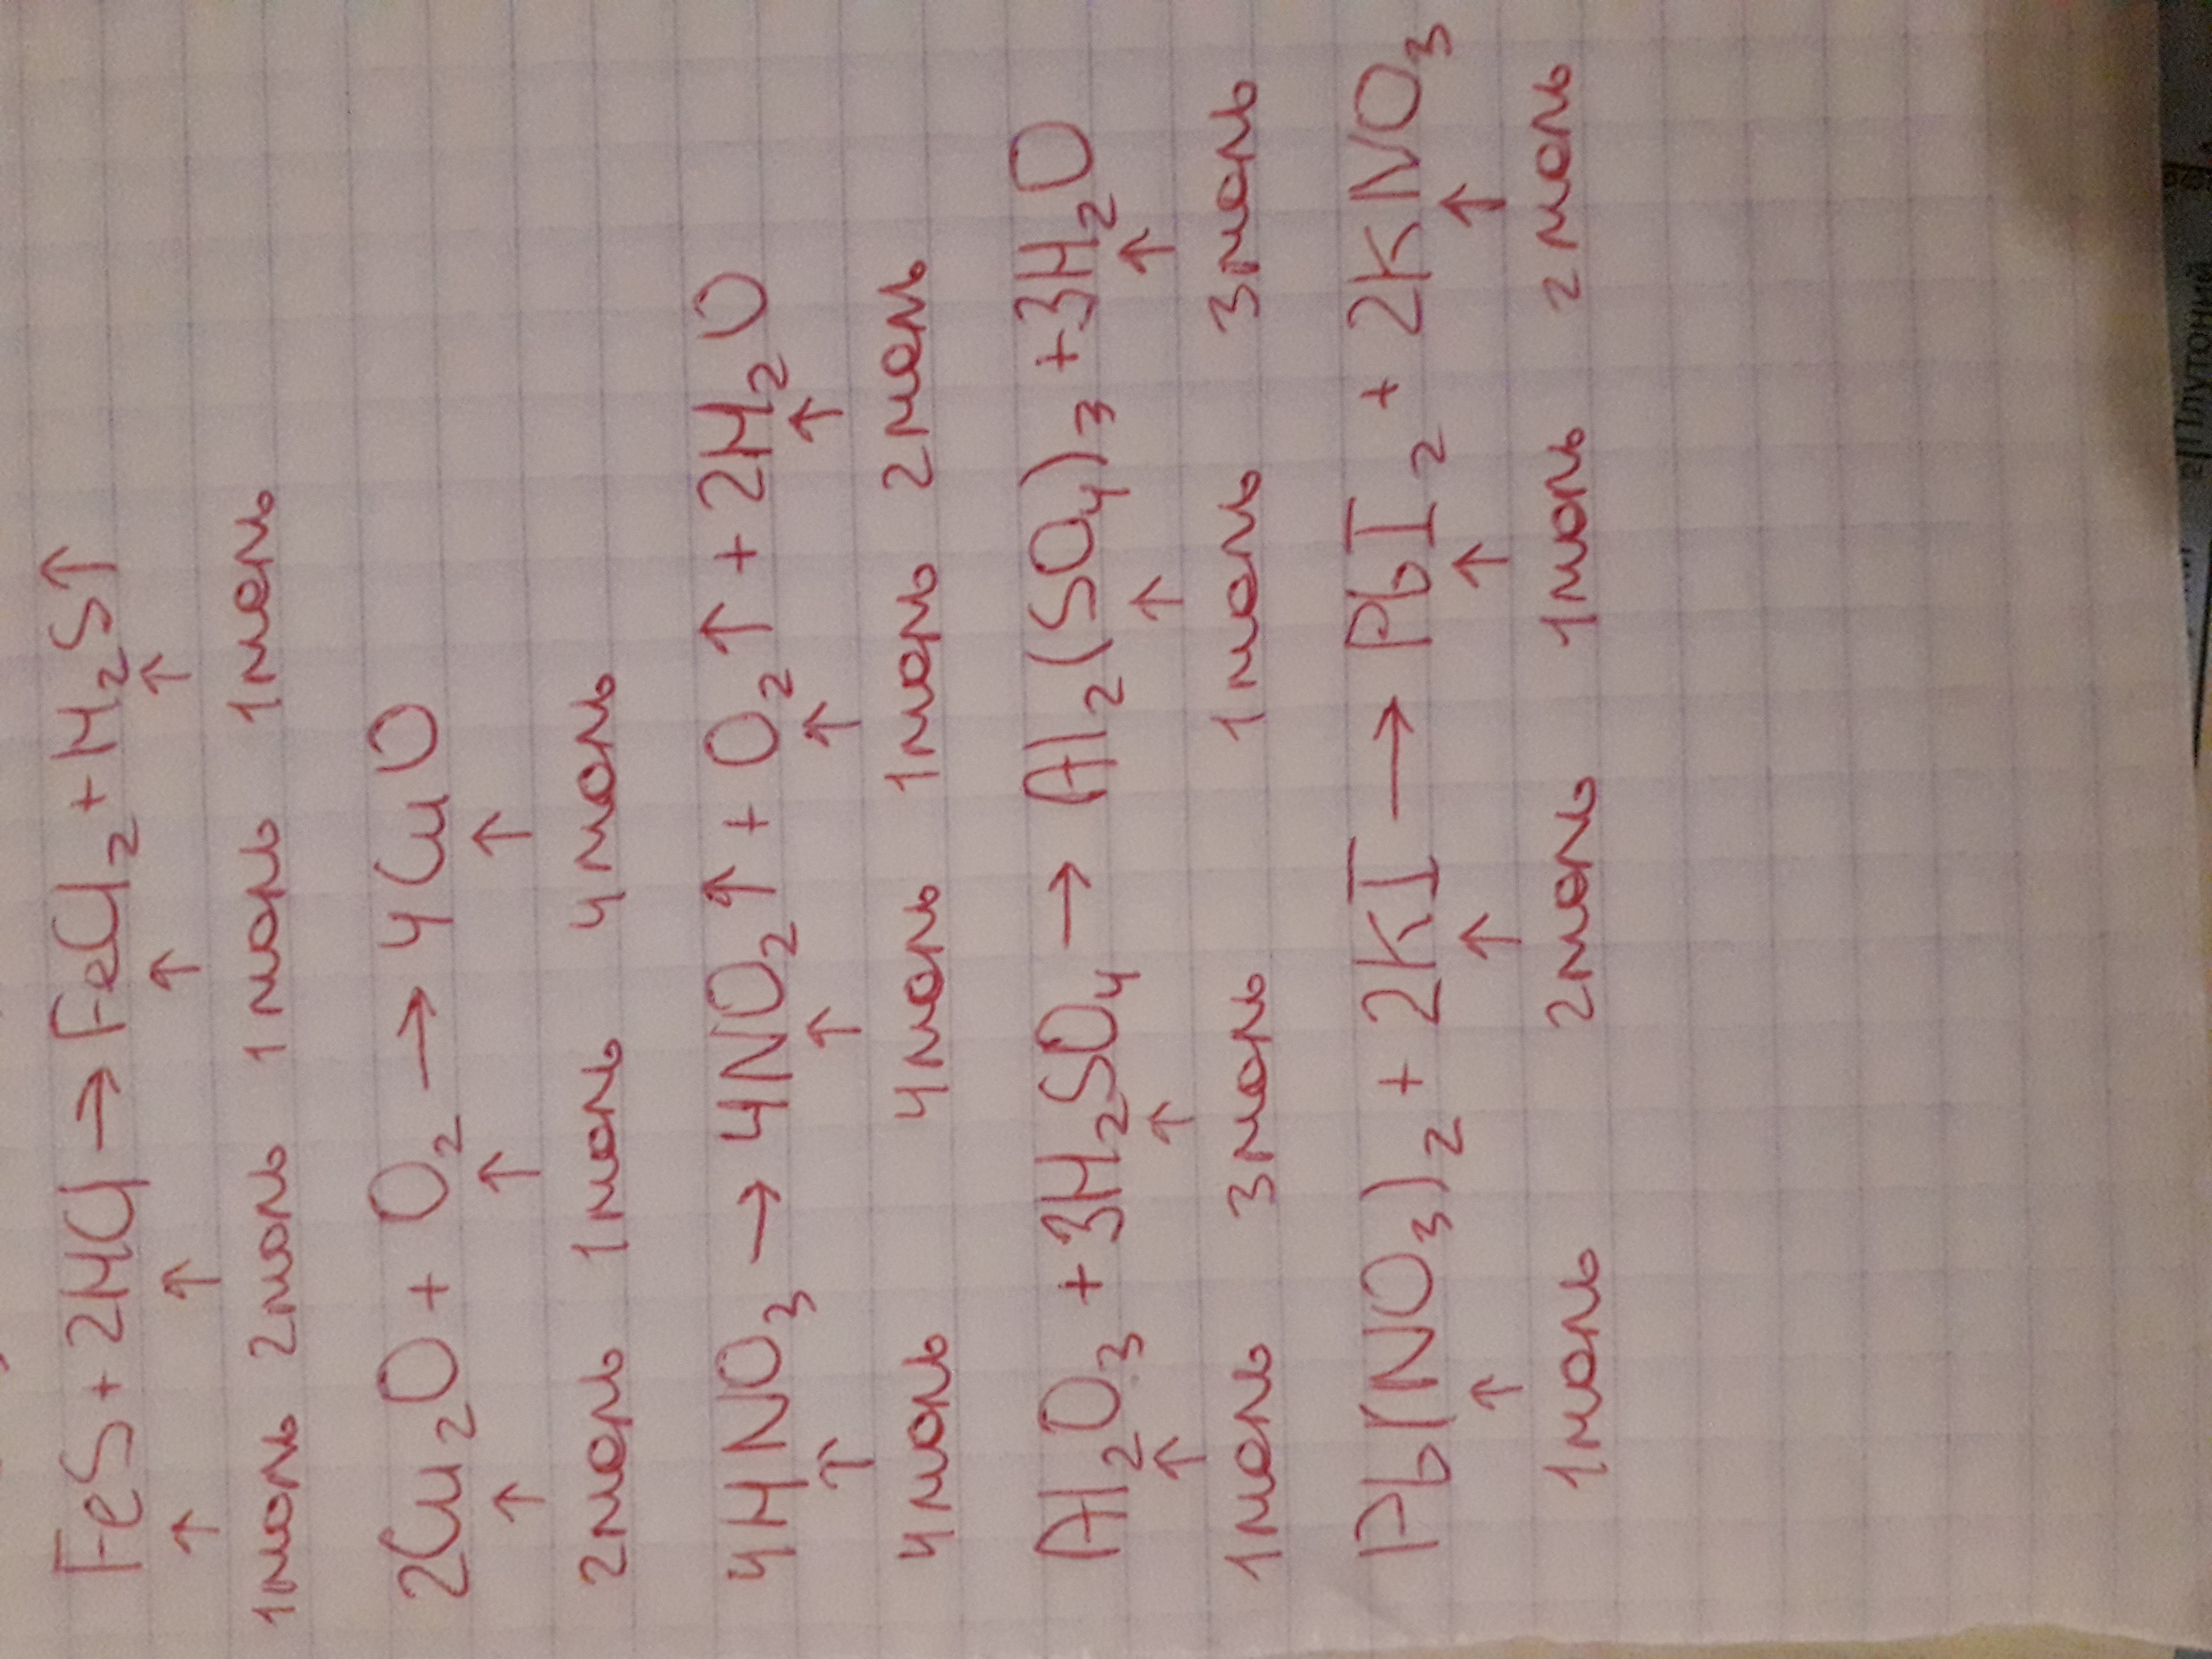 FeS + 2HCl → FeCl₂ + H₂S↑
↑ ↑ ↑ ↑
1моль 2моль 1моль 1моль
2Cu₂O + O₂ → 4CuO
↑ ↑ ↑
2моль 1моль 4моль
4HNO₃ → 4NO₂↑ + O₂↑ + 2H₂O
↑ ↑ ↑ ↑
4моль 4моль 1моль 2моль
Al₂O₃ + 3H₂SO₄ → Al₂(SO₄)₃ + 3H₂O
↑ ↑ ↑ ↑
1моль 3моль 1моль 3моль
Pb(NO₃)₂ + 2KI → PbI₂ + 2KNO₃
↑ ↑ ↑ ↑
1моль 2моль 1моль 2моль